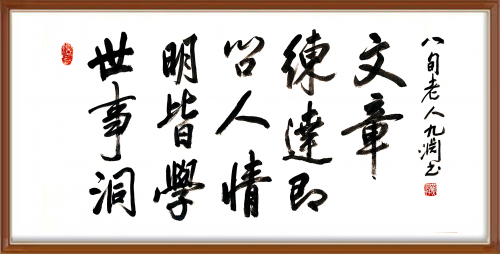 世事洞
明皆學
問人情
練達即
文章
八旬老人九书